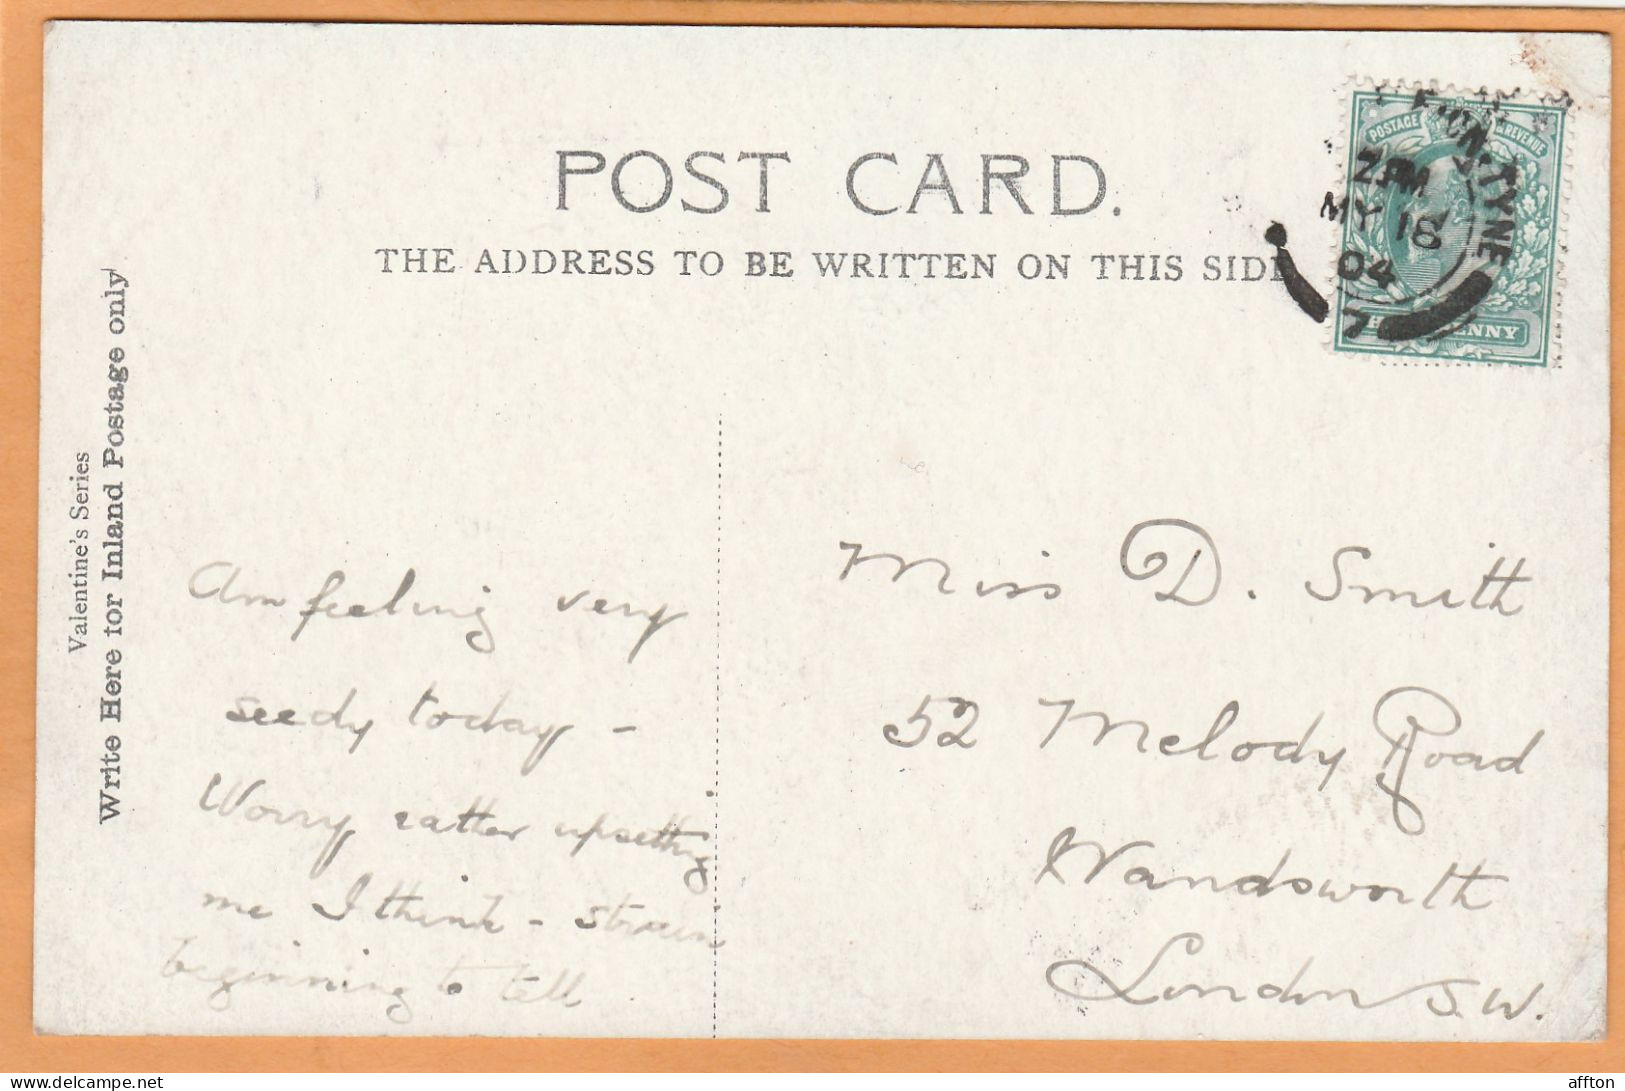 POST CARD.
THE ADDRESS TO BE WRITTEN ON THIS SIDE
POSTAGE & REVENUE
ON. TYNE
2 PM
MY 18
04
7
PENNY
Valentine's Series
Write Here for Inland Postage only
Am feeling very
seedy today -
Worry rather upsetting
me I think - strain
beginning to tell
Miss D. Smith
52 Melody Road
Wandsworth
London S.W.
affton